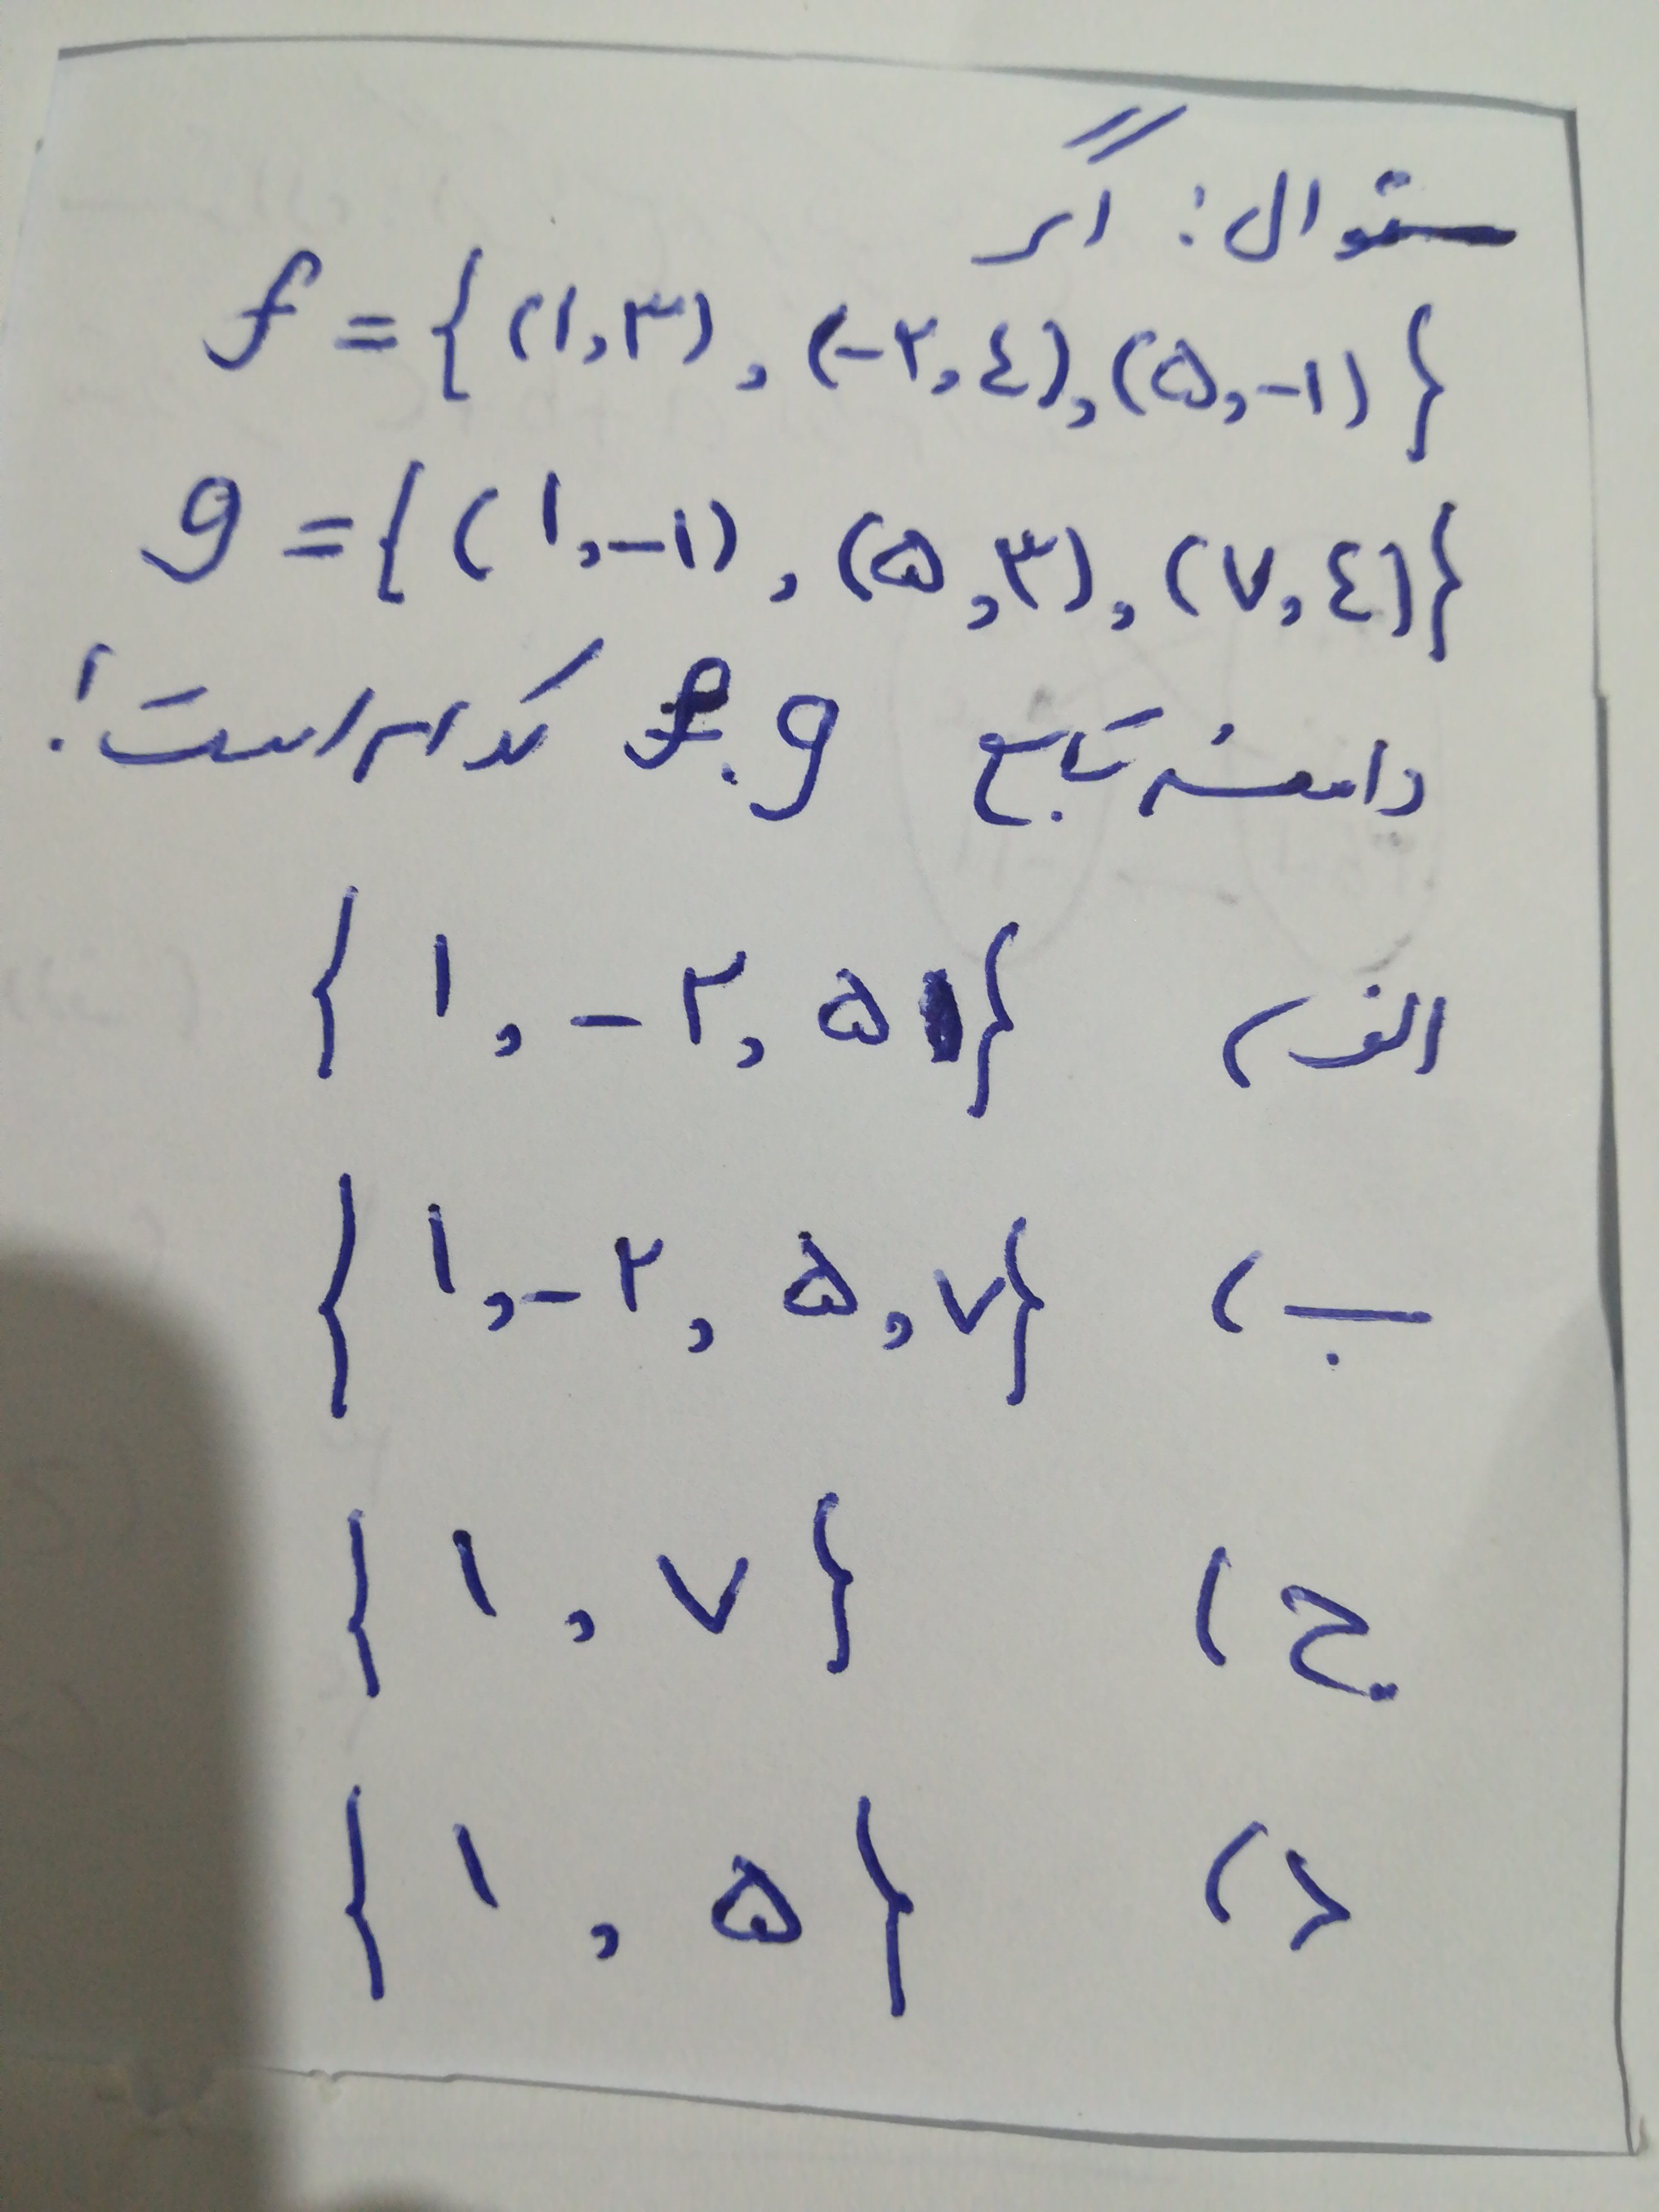 سئوال: اگر
f = {(۱,۳), (-۲,٤), (۵,-۱)}
g = {(۱,-۱), (۵,۳), (۷,٤)}
دامنه تابع f.g کدام است؟
الف) {۱, -۲, ۵}
ب) {۱, -۲, ۵, ۷}
ج) {۱, ۷}
د) {۱, ۵}